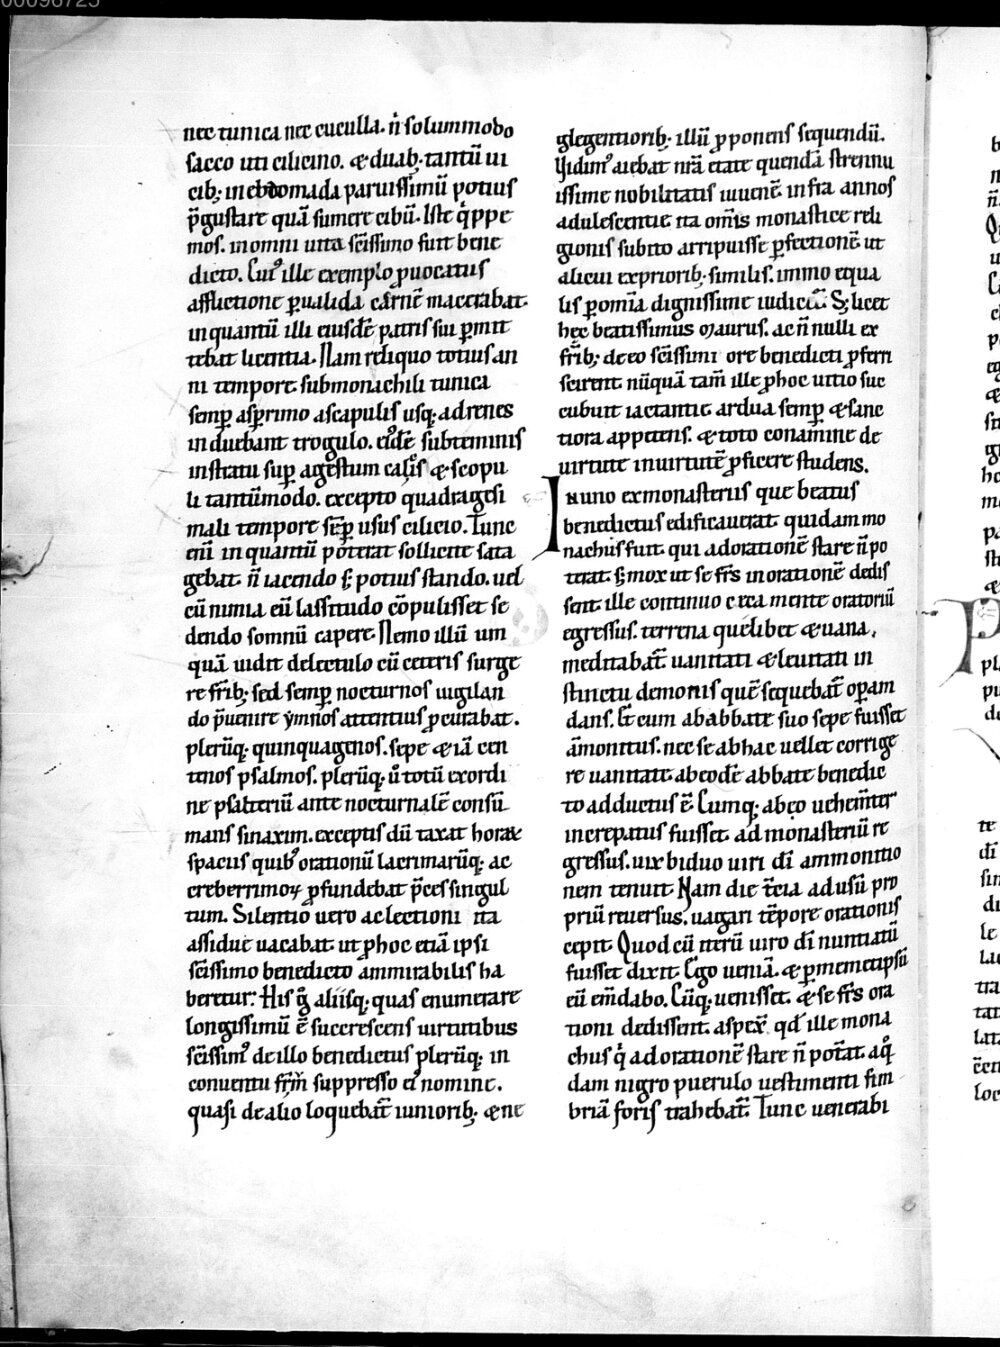 nec tunica nec cuculla. n̄ solummodo
sacco uti cilicino. & duab; tantū ui
cib; in ebdomada paruissimū potius
p̄gustare quā sumere cibū. Iste q̇ppe
mos. in omni uita sc̄issimo fuit bene
dicto. Cui᷒ ille exemplo ꝓuocatus
afflictione ꝑualida carnē macerabat.
in quantū illi eiusdē patris sui ꝑmit
tebat licentia. Nam reliquo totius an
ni tempore sub monachili tunica
semꝑ asꝑrimo a scapulis usq; ad renes
induebant trogulo. eidē subteminis
in stratu suꝑ agestum calcis & scopu
li tantūmodo. excepto quadragesi
mali tempore sēꝑ usus cilicio. Tunc
eni in quantū poterat sollicite sata
gebat. n̄ iacendo s; potius stando. uel
cū nimia eū lassitudo cōpulisset se
dendo somnū capere. Nemo illū um
quā uidit de lectulo cū ceteris surge
re fr̄ib; sed semꝑ nocturnos uigilan
do p̄uenire ymnos attentius ꝓcurabat.
plerūq; quinquagenos. sepe & iā cen
tenos psalmos. plerūq; u̇ totū ex ordi
ne psalteriū ante nocturnalē consū
mans sinaxim. exceptis dū taxat horaꝝ
spaciis quib᷒ orationū lacrimarūq; ac
creberrimoꝝ ꝓfundebat p̄ces singul
tum. Silentio uero ac lectioni ita
assidue uacabat. ut ꝓ hoc etiā ipsi
sc̄issimo benedicto ammirabilis ha
beretur. His g̊ aliisq; quas enumerare
longissimū ē succrescens uirtutibus
sc̄issim᷒ de illo benedictus plerūq; in
conuentu fr̄m̄ suppresso ei nomine.
quasi de alio loquebat̄ iuniorib; & ne
glegentiorib; illū ꝓponens sequendū.
Vidim᷒ aiebat nr̄a etate quendā strennu
issime nobilitatis iuuenē infra annos
adulescentie ita om̄is monastice reli
gionis subito arripuisse ꝑfectionē ut
alicui ex priorib; similis. immo equa
lis ꝑ omīa dignissime S; licet
hec beatissimus maurus. ac n̄ nulli ex
fr̄ib; de eo sc̄issimi ore benedicti ꝓferri
scirent. nūquā tam̄ ille ꝓ hoc uitio suc
cubuit iactantie. ardua semꝑ & sanc
tiora appetens. & toto conamine de
uirtute in uirtutē ꝓficere studens.
In uno ex monasteriis que beatus
benedictus edificauerat. quidam mo
nachus fuit. qui ad orationē stare n̄ po
terat. s; mox ut se fr̄s in orationē dedis
sent. ille continuo cum mente oratoriū
egressus. terrena quelibet & uana,
meditabat̄. uanitati & leuitati in
stinctu demonis quē sequebat̄ oꝑam
dans. Et cum ab abbate suo sepe fuisset
āmonitus. nec se ab hac uellet corrige
re uanitate. ab eodē abbate benedic
to adductus ē. Cumq; ab eo uehemt̄er
increpatus fuisset. ad monasteriū re
gressus. uix biduo uiri dī ammonitio
nem tenuit. Nam die t̄cia ad usū pro
priū reuersus. uagari tēpore orationis
cepit. Quod cū iterū uiro dī nuntiatū
fuisset. dixit. Ego ueniā. & ꝑ memetipsū
eū em̄dabo. Cūq; uenisset. & se fr̄s ora
tioni dedissent. aspex̄ qd̄ ille mona
chus q̇ ad orationē stare n̄ pot̄at. a q̊
dam nigro puerulo uestimenti fim
briā foris trahebat̄. Tunc uenerabi